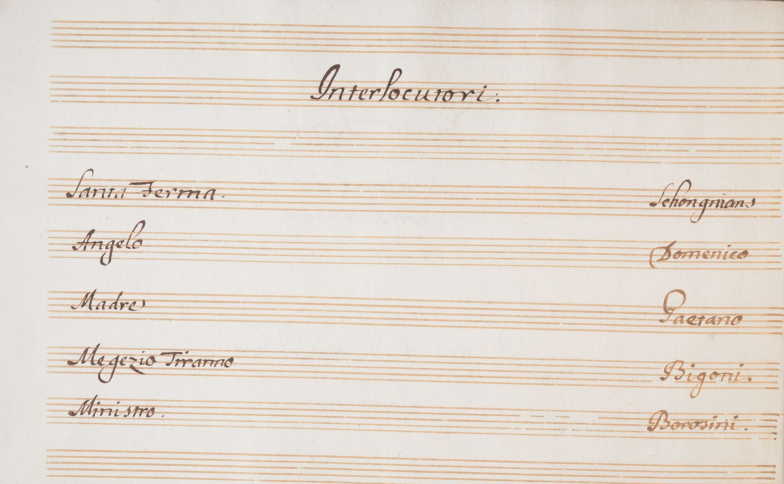 Interlocutori.
Santa Ferma. Schongnians
Angelo Domenico
Madre Gaetano
Megezio Tiranno Bigoni.
Ministro. Borosini.